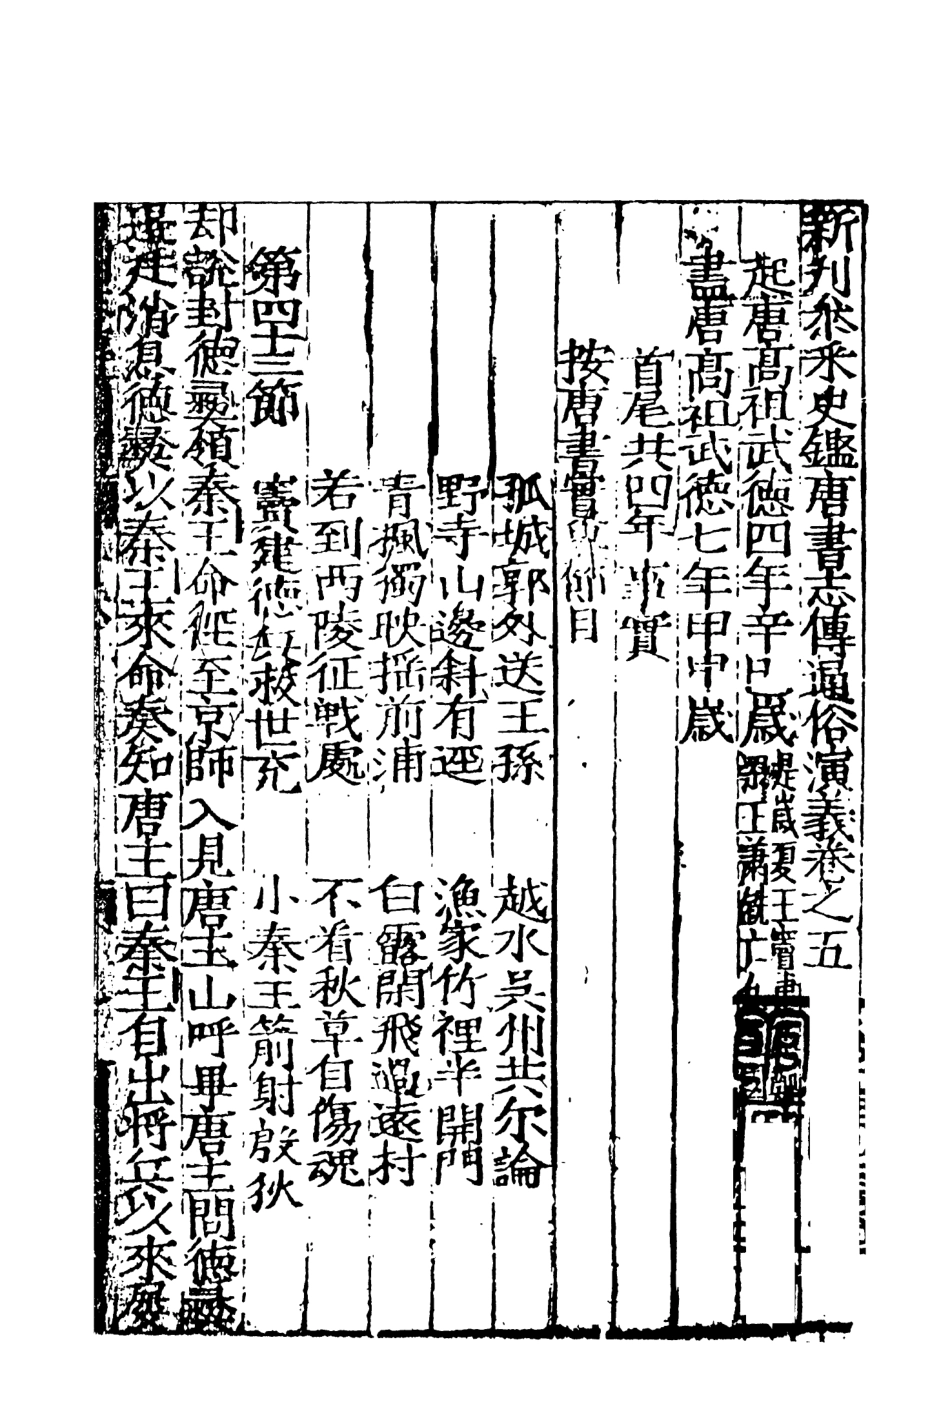 新刋叅采史鑑唐書志傳通俗演義卷之五
起唐髙祖武德四年辛巳嵗
是嵗夏王竇建
梁王蕭銑亡
盡唐髙祖武德七年甲申嵗
首尾共四年事實
按唐書實史節目
孤城郭外送王孫　越水吳州共尔論
野寺山邊斜有逕　漁家竹裡半開門
青楓獨映揺前浦　白露閑飛過遠村
若到西陵征戰處　不看秋草自傷魂
第四十三節　竇建德兵救世充　小秦王箭射殷狄
却說封德彝領秦王命徑至京師入見唐主山呼畢唐主問德彝
進消息德彝以秦王來命奏知唐主曰秦王自出將兵以來屡